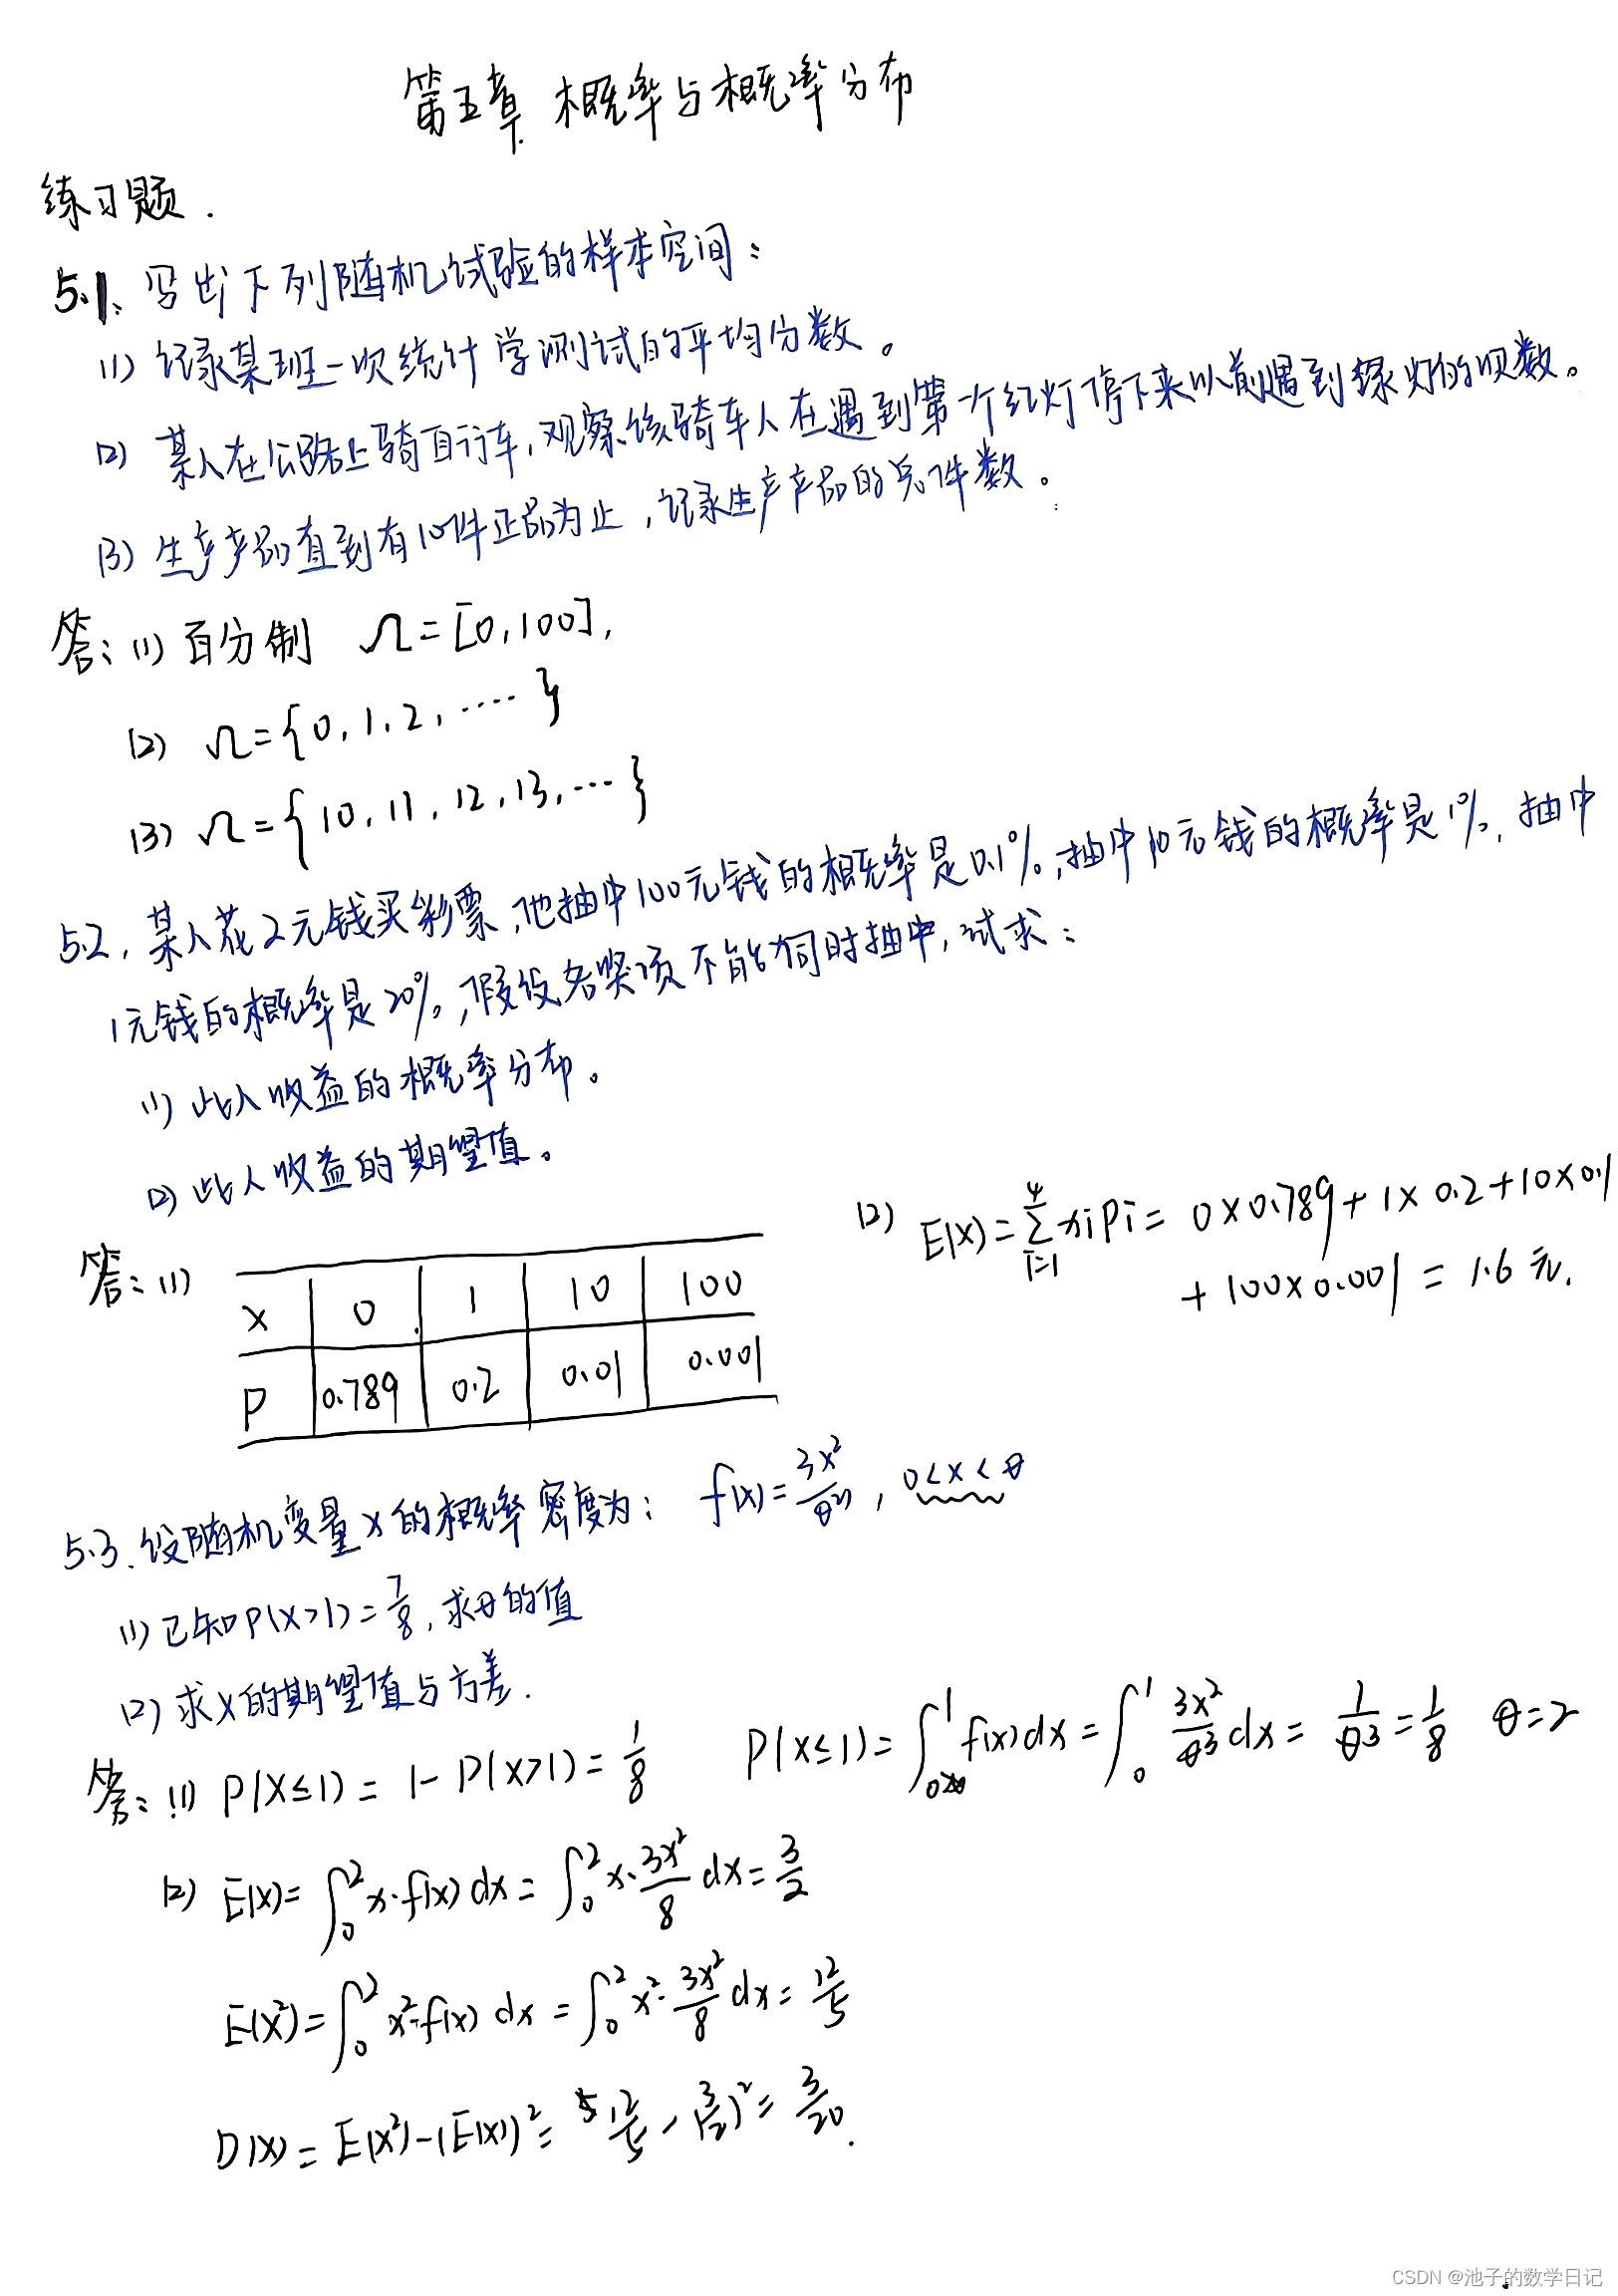 第五章 概率与概率分布
练习题.
5.1、写出下列随机试验的样本空间：
(1) 记录某班一次统计学测试的平均分数。
(2) 某人在公路上骑自行车,观察该骑车人在遇到第一个红灯停下来以前遇到绿灯的次数。
(3) 生产产品直到有10件正品为止,记录生产产品的总件数。
答：(1) 百分制 Ω=[0,100],
(2) Ω={0,1,2,……}
(3) Ω={10,11,12,13,…}
5.2、某人花2元钱买彩票,他抽中100元钱的概率是0.1%,抽中10元钱的概率是1%,抽中
1元钱的概率是20%,假设各奖项不能同时抽中,试求：
(1) 此人收益的概率分布。
(2) 此人收益的期望值。
答：(1)
X 0 1 10 100
P 0.789 0.2 0.01 0.001
(2) E(X)=∑_{i=1}^{4} xiPi= 0×0.789+1×0.2+10×0.1
+100×0.001=1.6元.
5.3.设随机变量X的概率密度为： f(x)=3x²/θ³, 0<x<θ
(1) 已知P(X>1)=7/8,求θ的值
(2) 求X的期望值与方差.
答：(1) P(X≤1)=1-P(X>1)=1/8 P(X≤1)=∫_0^1 f(x)dx=∫_0^1 3x²/θ³ dx=1/θ³=1/8 θ=2
(2) E(X)=∫_0^2 x·f(x)dx=∫_0^2 x·3x²/8 dx=3/2
E(X²)=∫_0^2 x²·f(x)dx=∫_0^2 x²·3x²/8 dx=12/5
D(X)=E(X²)-(E(X))²=12/5-(3/2)²=3/20.
CSDN @池子的数学日记